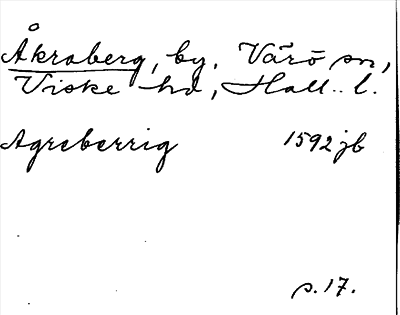 Åkraberg, by, Värö sn,
Viske hd, Hall. l.
Agreberrig 1592 jb
s. 17.